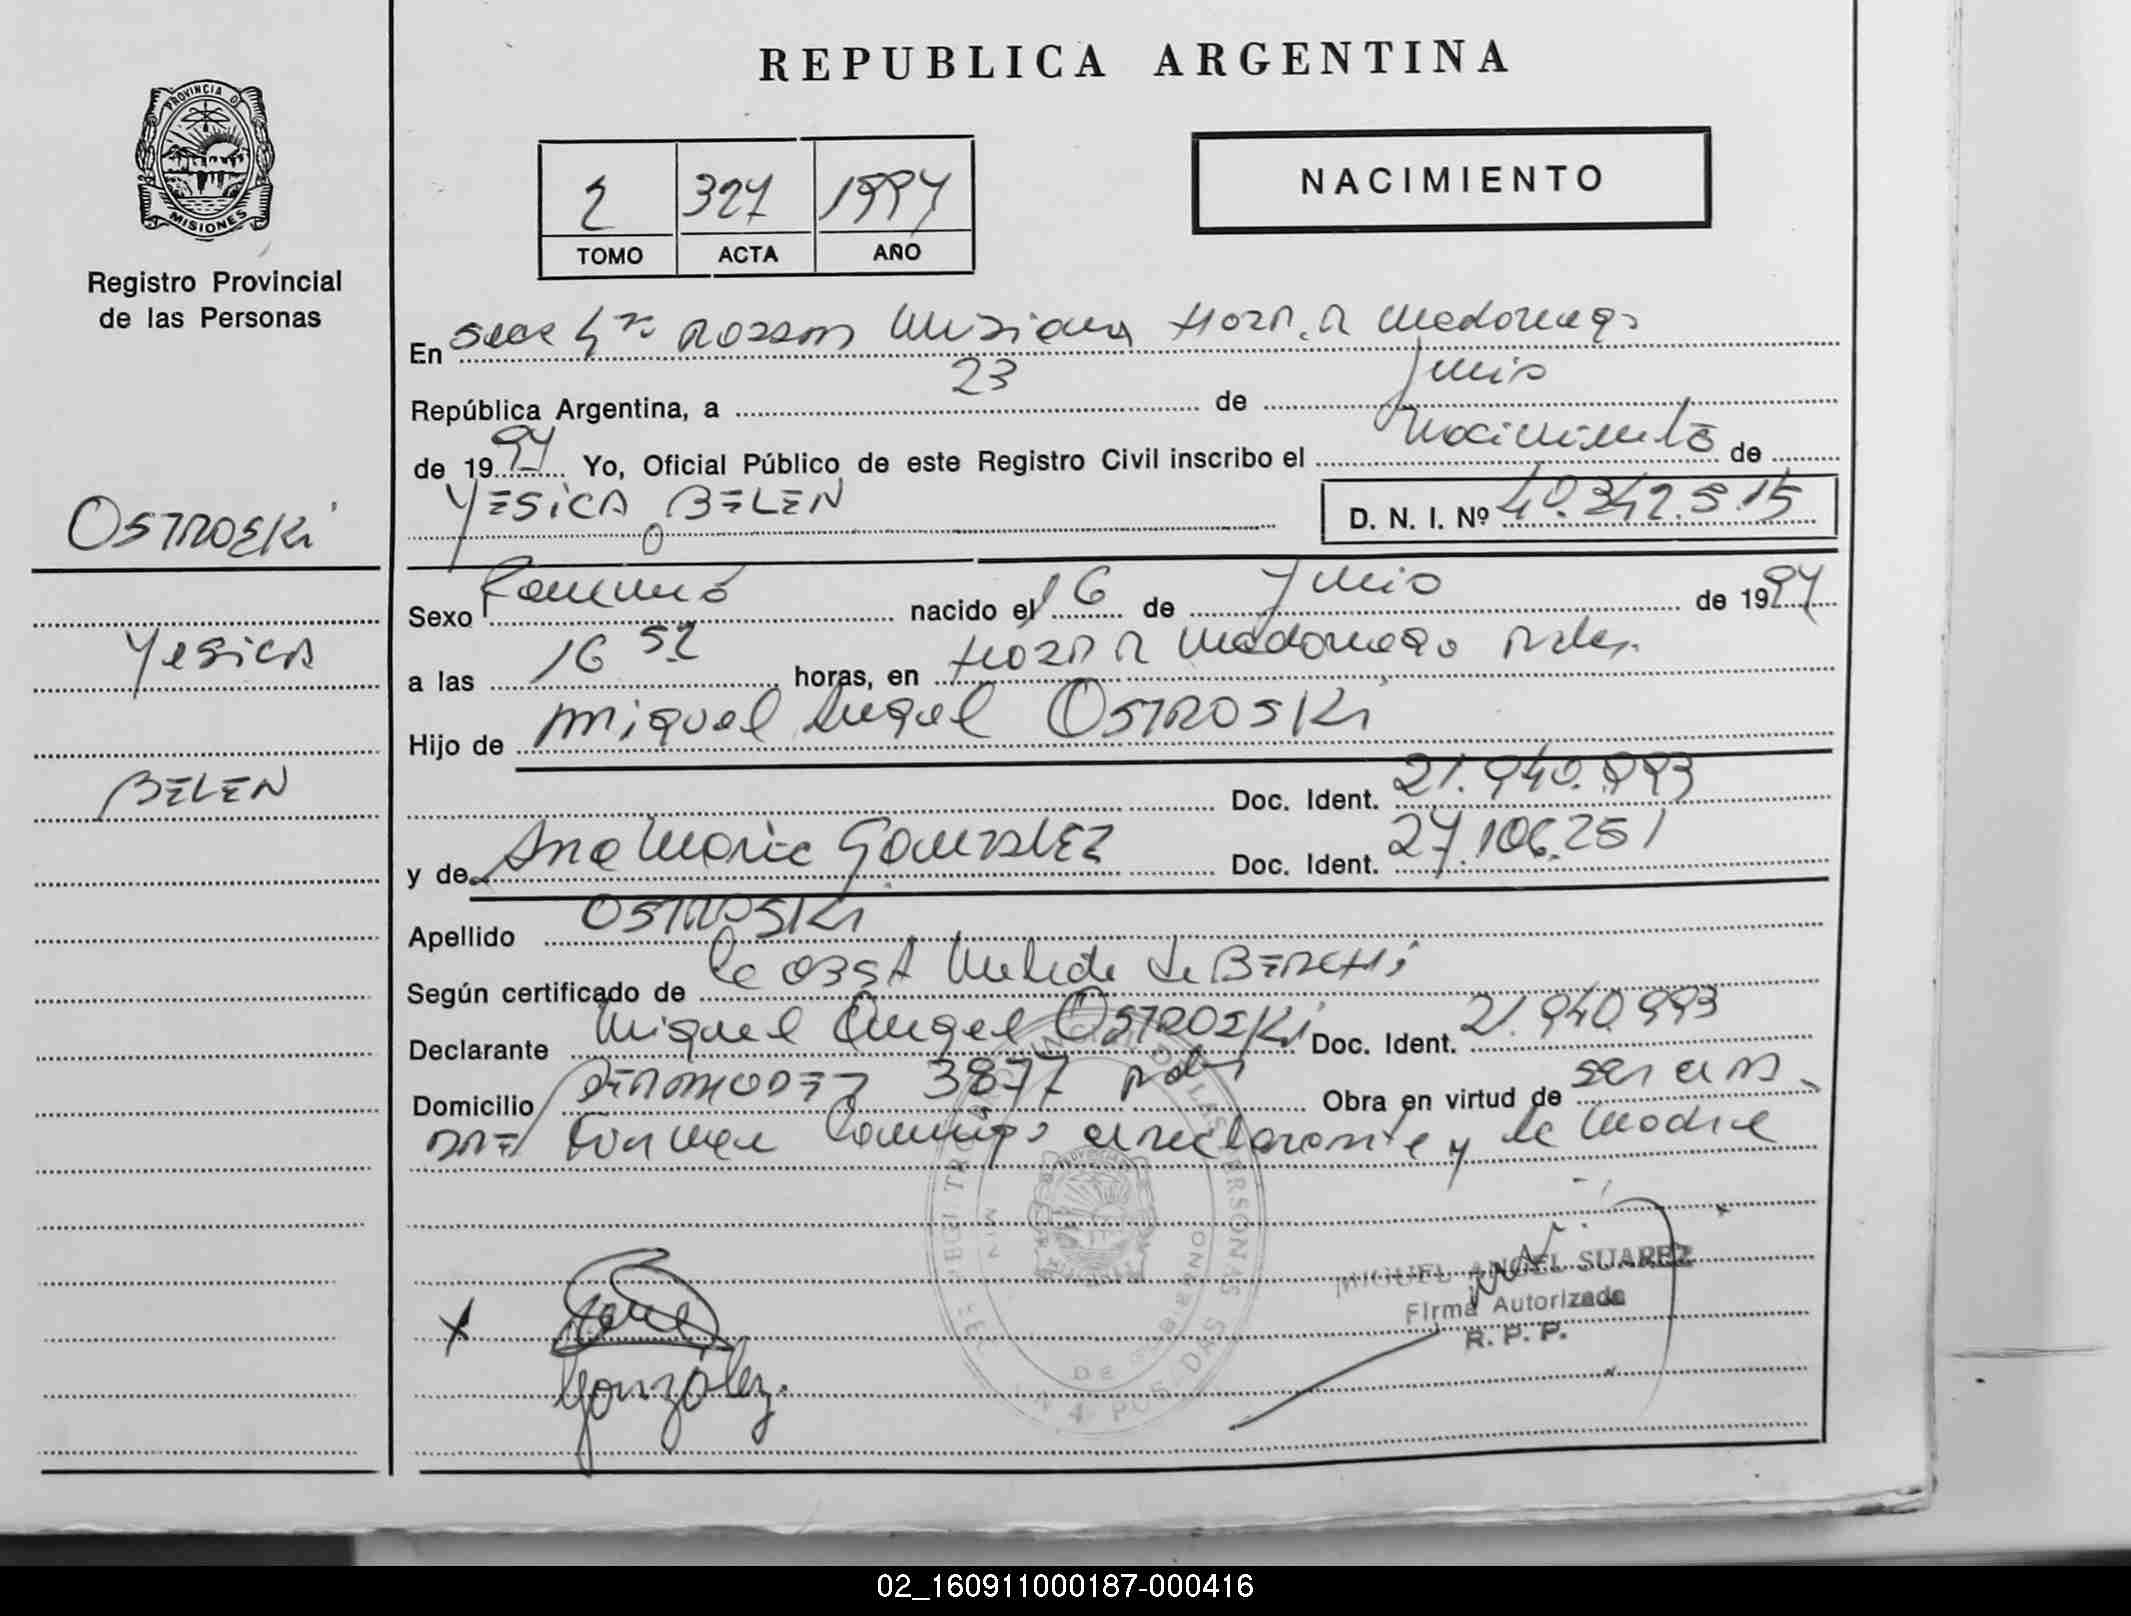 REPUBLICA ARGENTINA
PROVINCIA D
MISIONES
Registro Provincial
de las Personas
2 327 1997
TOMO ACTA AÑO
NACIMIENTO
En Misiones Hosp. R Madariaga
República Argentina, a 23 de Junio
de 1997 Yo, Oficial Público de este Registro Civil inscribo el Nacimiento de
YESICA BELEN
D. N. I. Nº 40.342.515
OSTROSKI
Yesica
BELEN
Sexo Femenino nacido el 16 de Junio de 1997
a las 16 52 horas, en Hosp R Madariaga Pdas.
Hijo de Miguel Angel OSTROSKI
Doc. Ident. 21.940.993
y de Ana Maria GONZALEZ Doc. Ident. 27.106.251
Apellido OSTROSKI
Según certificado de la OBST
Declarante Miguel Angel OSTROSKI Doc. Ident. 21.940.993
Domicilio 3877 Pdas Obra en virtud de ser el
Firman conmigo el declarante y la Madre
Gonzalez.
MIGUEL ANGEL SUAREZ
Firma Autorizada
R. P. P.
02_160911000187-000416